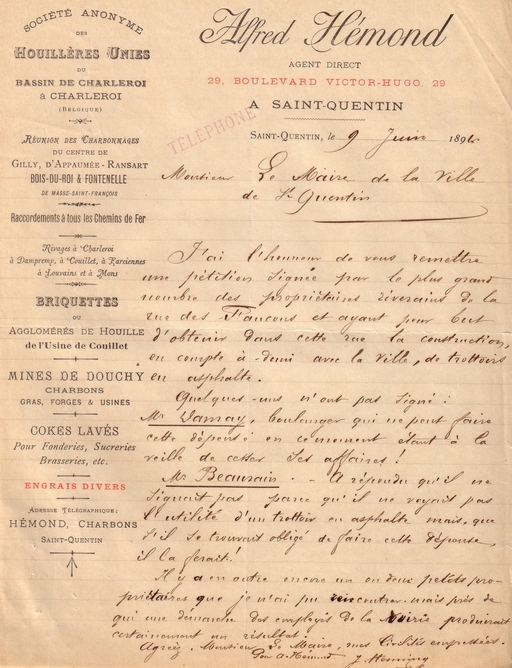 SOCIÉTÉ ANONYME
DES
HOUILLÈRES UNIES
DU
BASSIN DE CHARLEROI
à CHARLEROI
(BELGIQUE)
RÉUNION DES CHARBONNAGES
DU CENTRE DE
GILLY, D'APPAUMÉE-RANSART
BOIS-DU-ROI & FONTENELLE
DE MASSE-SAINT-FRANÇOIS
Raccordements à tous les Chemins de Fer
Rivages à Charleroi
à Dampremy, à Couillet, à Farciennes
à Louvains et à Mons
BRIQUETTES
OU
AGGLOMÉRÉS DE HOUILLE
de l'Usine de Couillet
MINES DE DOUCHY
CHARBONS
GRAS, FORGES & USINES
COKES LAVÉS
Pour Fonderies, Sucreries
Brasseries, etc.
ENGRAIS DIVERS
ADRESSE TÉLÉGRAPHIQUE:
HÉMOND, CHARBONS
SAINT-QUENTIN
Alfred Hémond
AGENT DIRECT
29, BOULEVARD VICTOR-HUGO, 29
A SAINT-QUENTIN
TÉLÉPHONE
SAINT-QUENTIN, le 9 Juin 189
Monsieur Le Maire de la Ville
de St Quentin
J'ai l'honneur de vous remettre
une pétition signée par le plus grand
nombre des propriétaires riverains de la
rue des Faucons et ayant pour but
d'obtenir dans cette rue la construction,
en compte à-demi avec la Ville, de trottoirs
en asphalte.
Quelques-uns n'ont pas signé:
Mr Damay, boulanger qui ne peut faire
cette dépense en ce moment étant à la
veille de cesser ses affaires!
Mr Beaurain - A répondu qu'il ne
signait pas parce qu'il ne voyait pas
l'utilité d'un trottoir en asphalte mais, que
s'il se trouvait obligé de faire cette dépense,
il la ferait!
Il y a en outre encore un ou deux petits pro-
priétaires que je n'ai pu rencontrer mais près de
qui une démarche des employés de la Voirie produirait
certainement un résultat.
Agréez, Monsieur Le Maire, mes Civilités empressées.
Pour A. Hémond